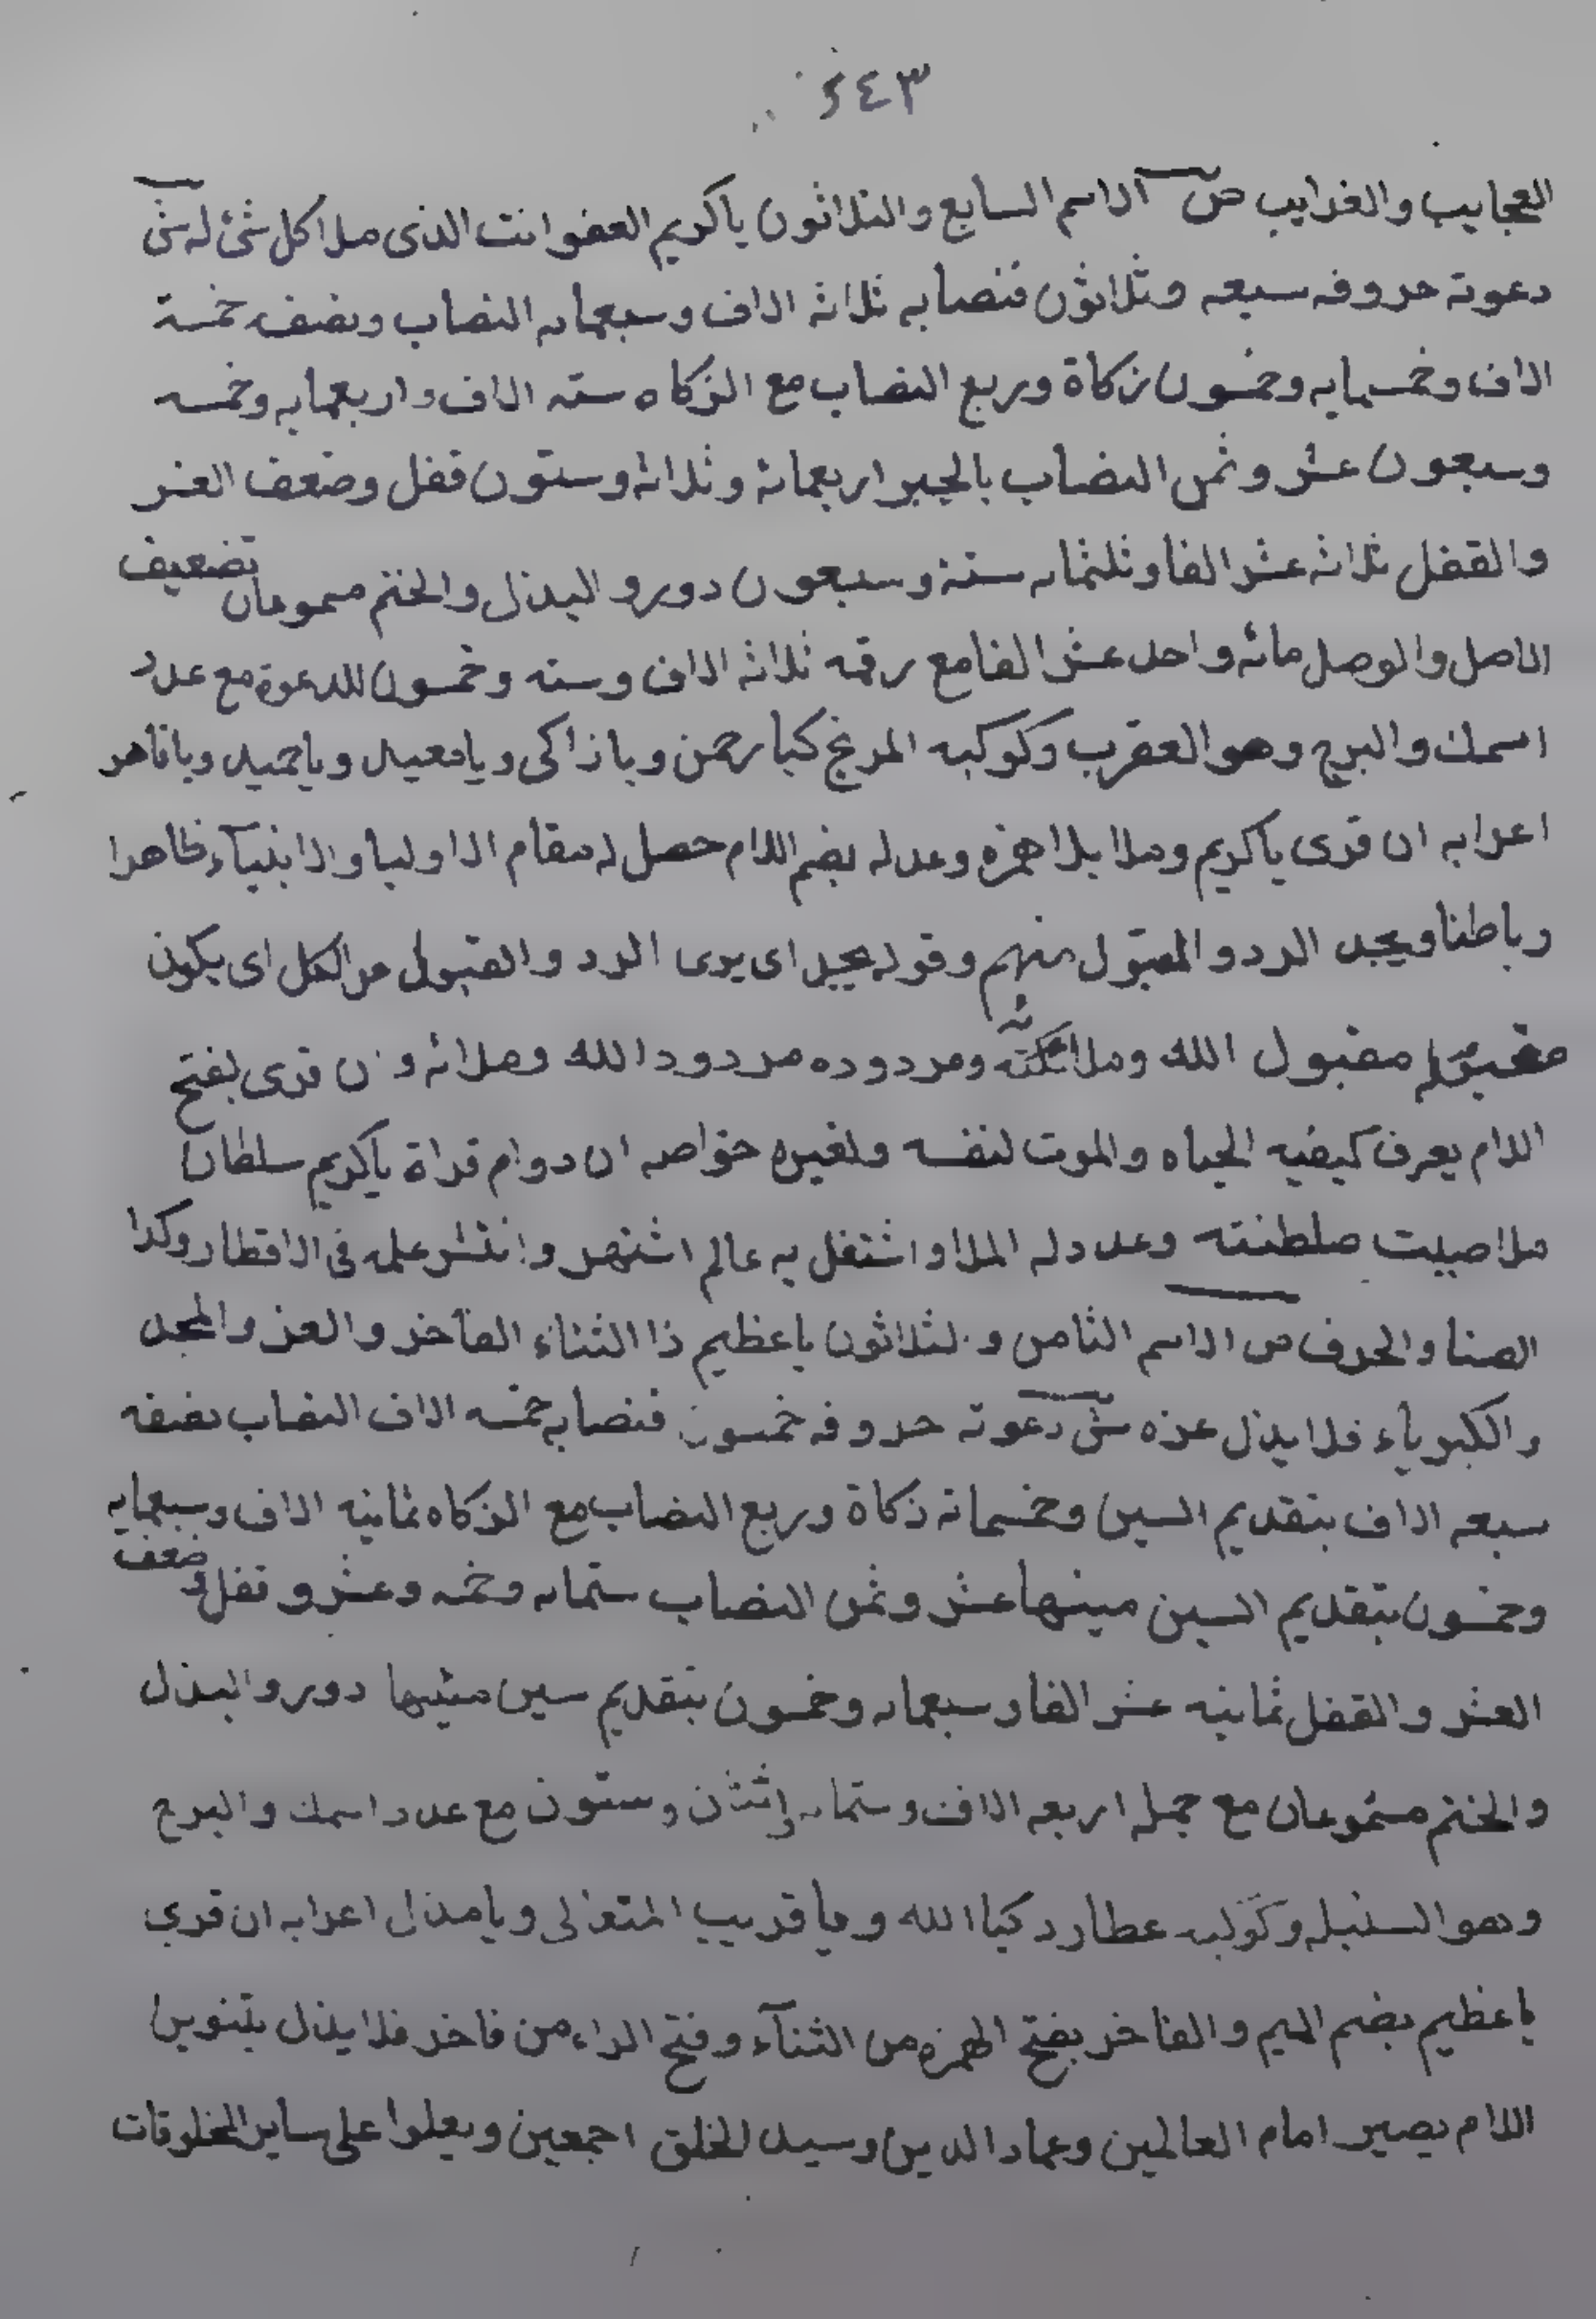 ٢٤٣
العجايب والغرايب ص الاسم السابع والثلاثون ياكريم العفو انت الذى ملا كل شئ له ش
دعوته حروفه سبعه وثلاثون فنصابه ثلاثة الاف وسبعمايه النصاب ونصفه خمسة
الاف وخمسمايه وخمسون زكاة وربع النصاب مع الزكاه سته الاف واربعمايه وخمسه
وسبعون عشر وثمن النصاب بالجبر اربعمائة وثلاثة وستون قفل وضعف العشر
والقفل ثلاثة عشر الفا وثلثمائه ستة وسبعون دور والبذل والختم مسموعان تضعيف
الاصل والوصل مائة واحد عشر الفا مع رقمه ثلاثة الاف وسته وخمسون للدعوة مع عدد
اسمك والبرج وهو العقرب وكوكبه المريخ كيا رحمن ويا زاكى ويا معيد ويا حميد ويا قاهر
اعرابه ان قرى ياكريم وملا بلا همزه وعدله بضم اللام حصل له مقام الاوليا والانبيآء ظاهرا
وباطنا ويجد الرد والقبول منهم وقوله يجد اى يرى الرد والقبول من الكل اى يكون
مقبوله مقبول الله وملائكته ومردوده مردود الله وملائه وان قرى بفتح
اللام يعرف كيفيه الحياه والموت لنفسه ولغيره خواصه ان دوام قراة ياكريم سلطان
ملا صيت سلطنته وعدله الملا واشتغل به عالم اشتهر وانتشر علمه فى الاقطار وكذا
الصنا والحرف ص الاسم الثامن والثلاثون ياعظيم ذا الثناء الفاخر والعز والمجد
والكبرياء فلا يذل عزه ش دعوته حروفه خمسون فنصابه خمسه الاف النصاب نصفه
سبعه الاف بتقديم السين وخمسمائة زكاة وربع النصاب مع الزكاه ثمانيه الاف وسبعمايه
وخمسون بتقديم السين مينها عشر وثمن النصاب ستمائه وخمسه وعشر وقفل وضعف
العشر والقفل ثمانيه عشر الفا وسبعمائه وخمسون بتقديم سين مينها دور والبذل
والختم مسموعان مع جمله اربعه الاف وستمائه واثنان وستون مع عدد اسمك والبرج
وهو السنبله وكوكبه عطارد كيا الله ويا قريب المتعالى ويا مذل اعرابه ان قرى
ياعظيم بضم الميم والفاخر بفتح الهمزه من الثنآء وفتح الراء من فاخر فلا يذل بتنوين
اللام يصير امام العالمين وعماد الدين وسيد الخلق اجمعين ويعلوا على ساير المخلوقات